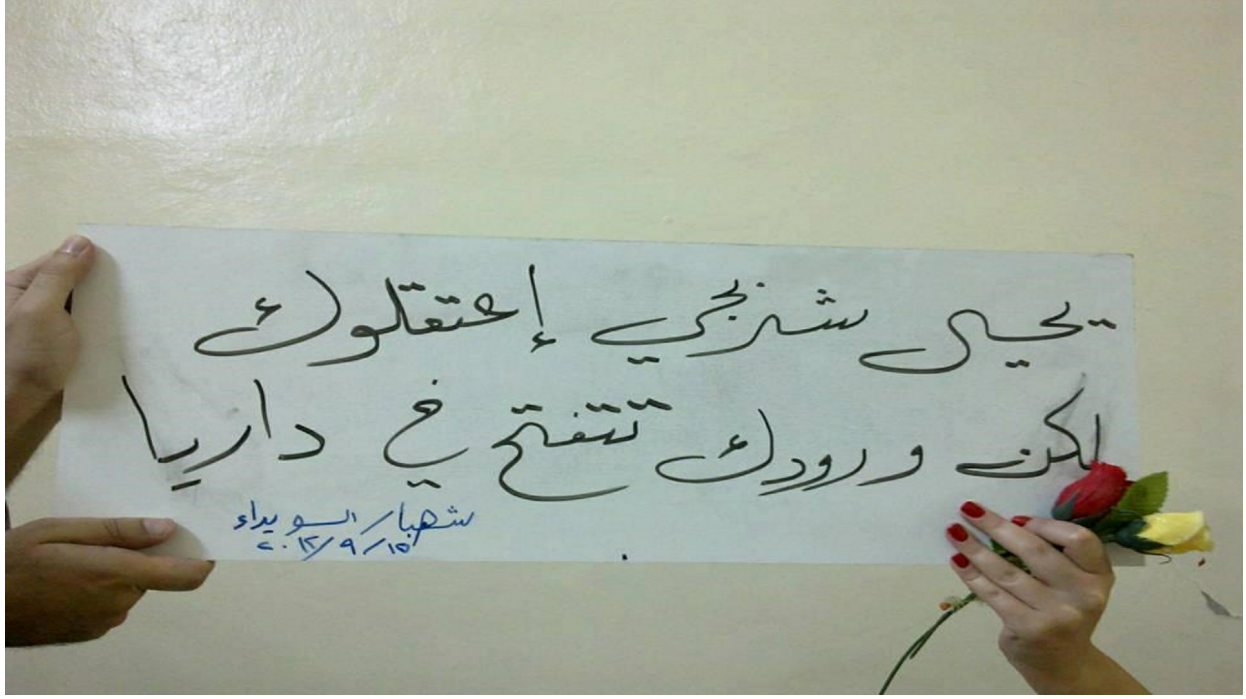 يحيى شربجي إعتقلوك
لكن ورودك تتفتح في داريا
شهبا / السويداء
٢٠١٢/٩/١٥